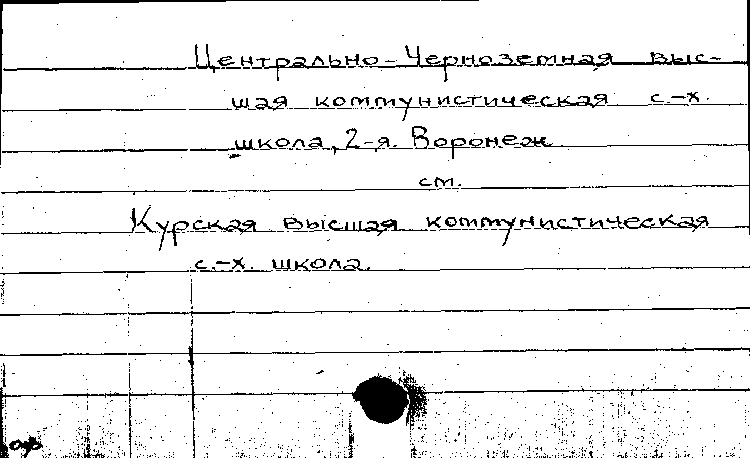 Центрально-Черноземная выс-
шая коммунистическая с.-х.
школа, 2-я. Воронеж
см.
Курская высшая коммунистическая
с.-х. школа.